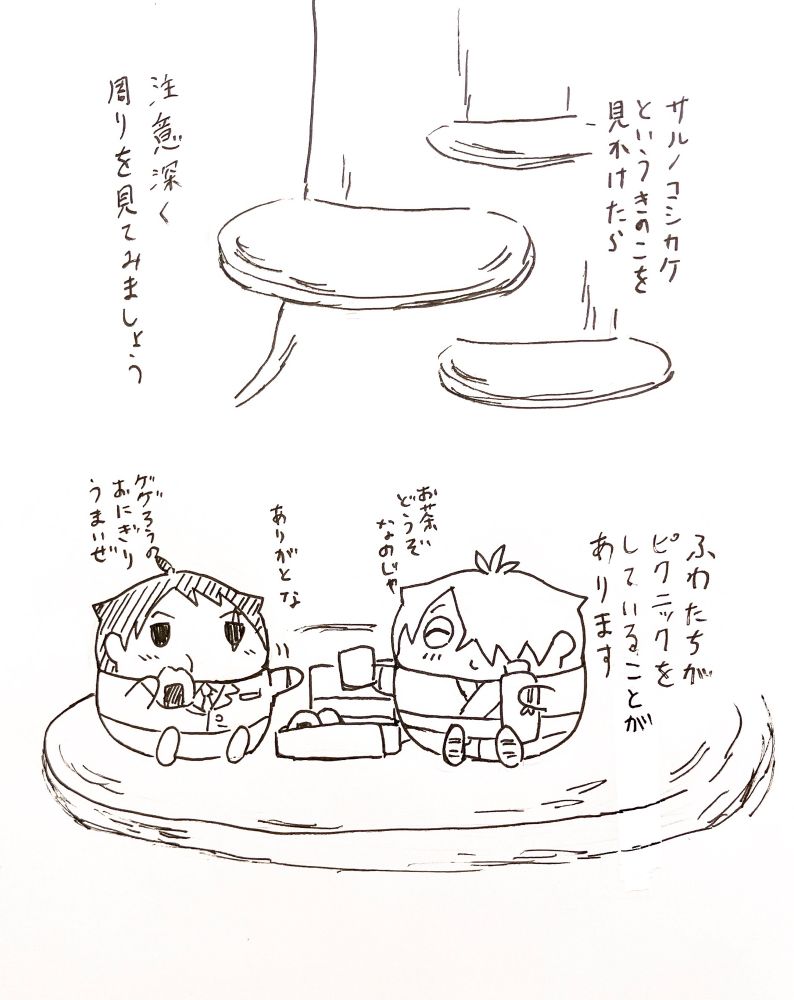 サルノコシカケ
というきのこを
見かけたら
注意深く
周りを見てみましょう
ふわたちが
ピクニックを
していることが
あります
お茶い
どうぞ
なのじゃ
ありがとな
ゲゲろうの
おにぎり
うまいぜ